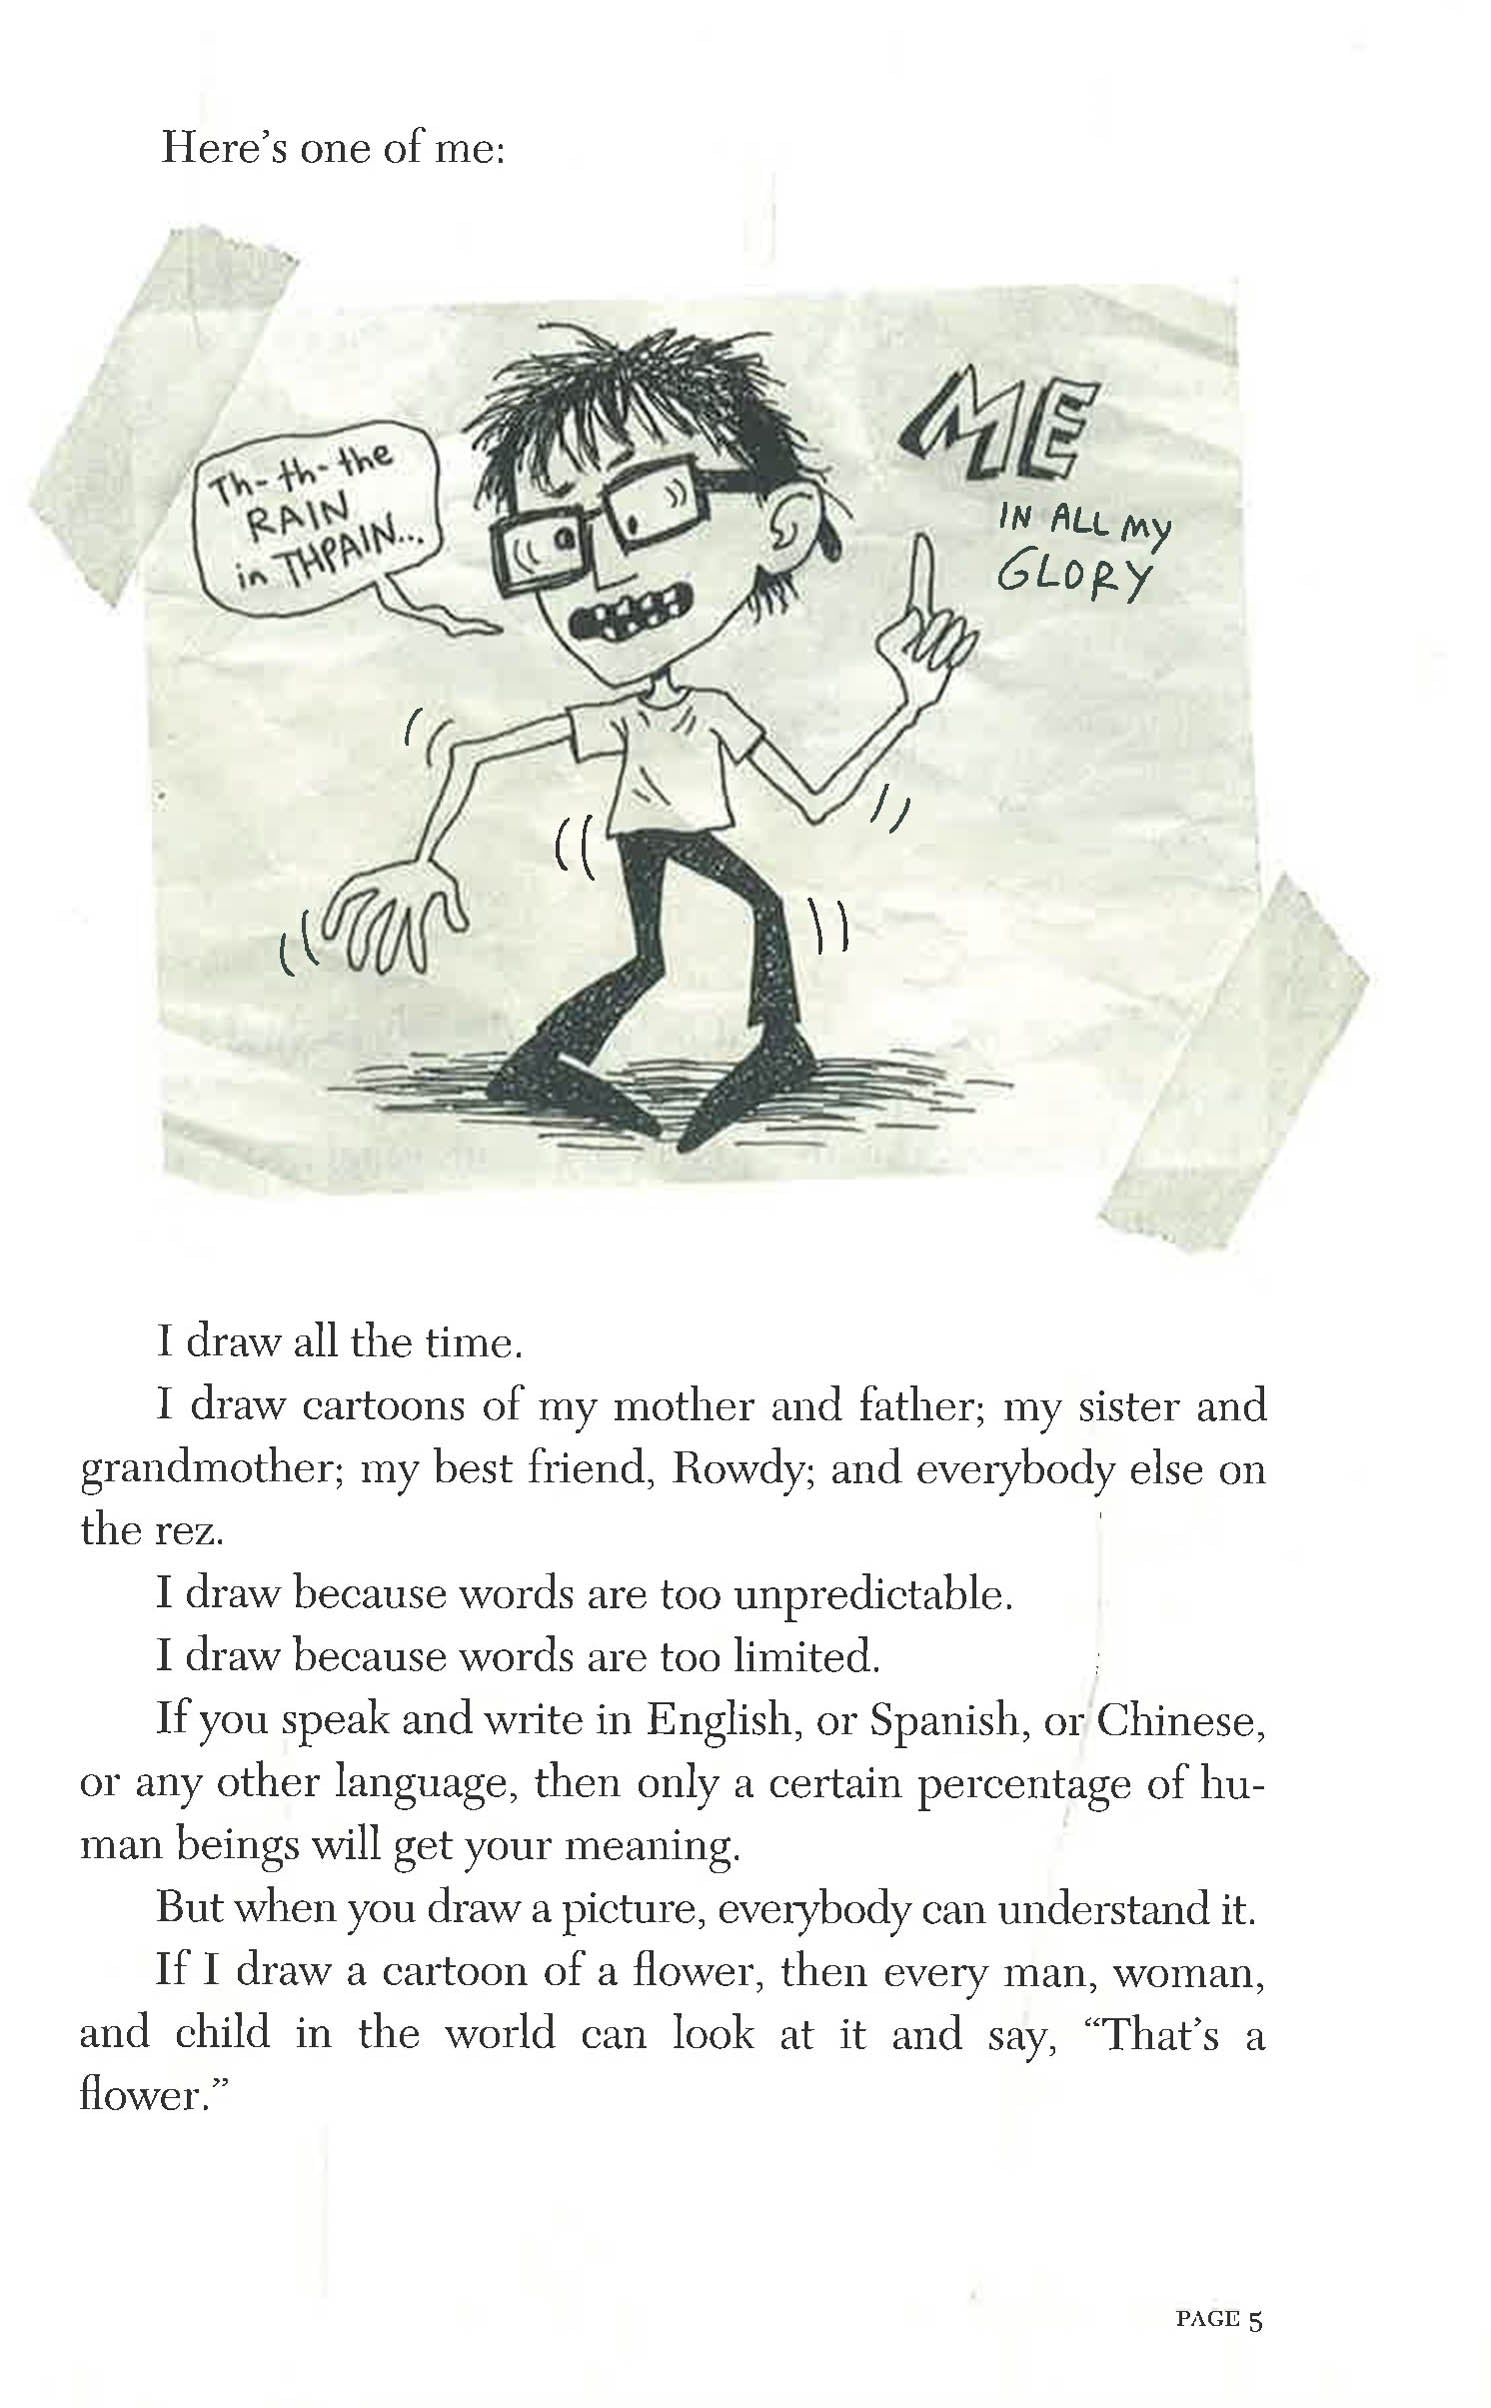 Here’s one of me:
Th-th-the
RAIN
in THPAIN...
ME
IN ALL MY
GLORY
I draw all the time.
I draw cartoons of my mother and father; my sister and
grandmother; my best friend, Rowdy; and everybody else on
the rez.
I draw because words are too unpredictable.
I draw because words are too limited.
If you speak and write in English, or Spanish, or Chinese,
or any other language, then only a certain percentage of hu-
man beings will get your meaning.
But when you draw a picture, everybody can understand it.
If I draw a cartoon of a flower, then every man, woman,
and child in the world can look at it and say, “That’s a
flower.”
PAGE 5